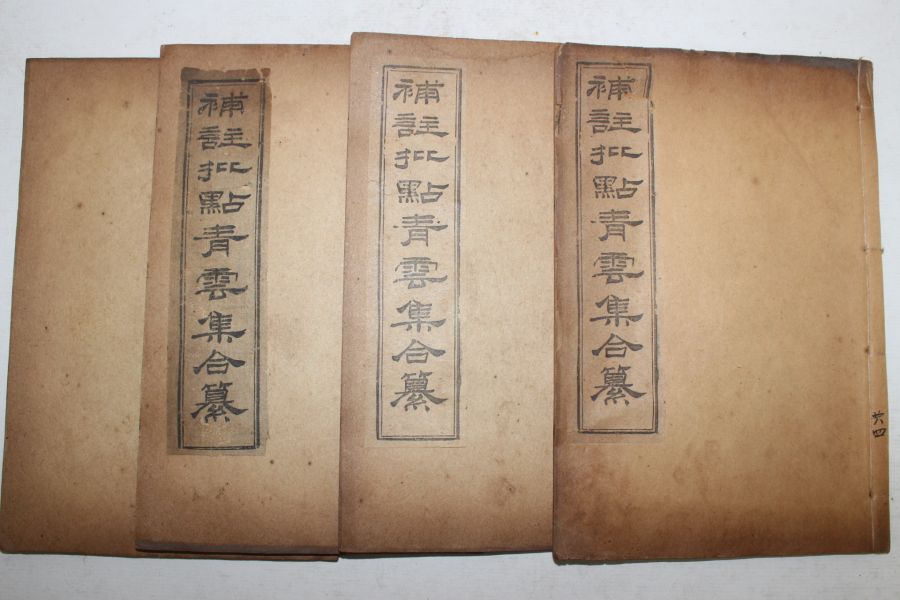 補註批點青雲集合纂
補註批點青雲集合纂
補註批點青雲集合纂
共四